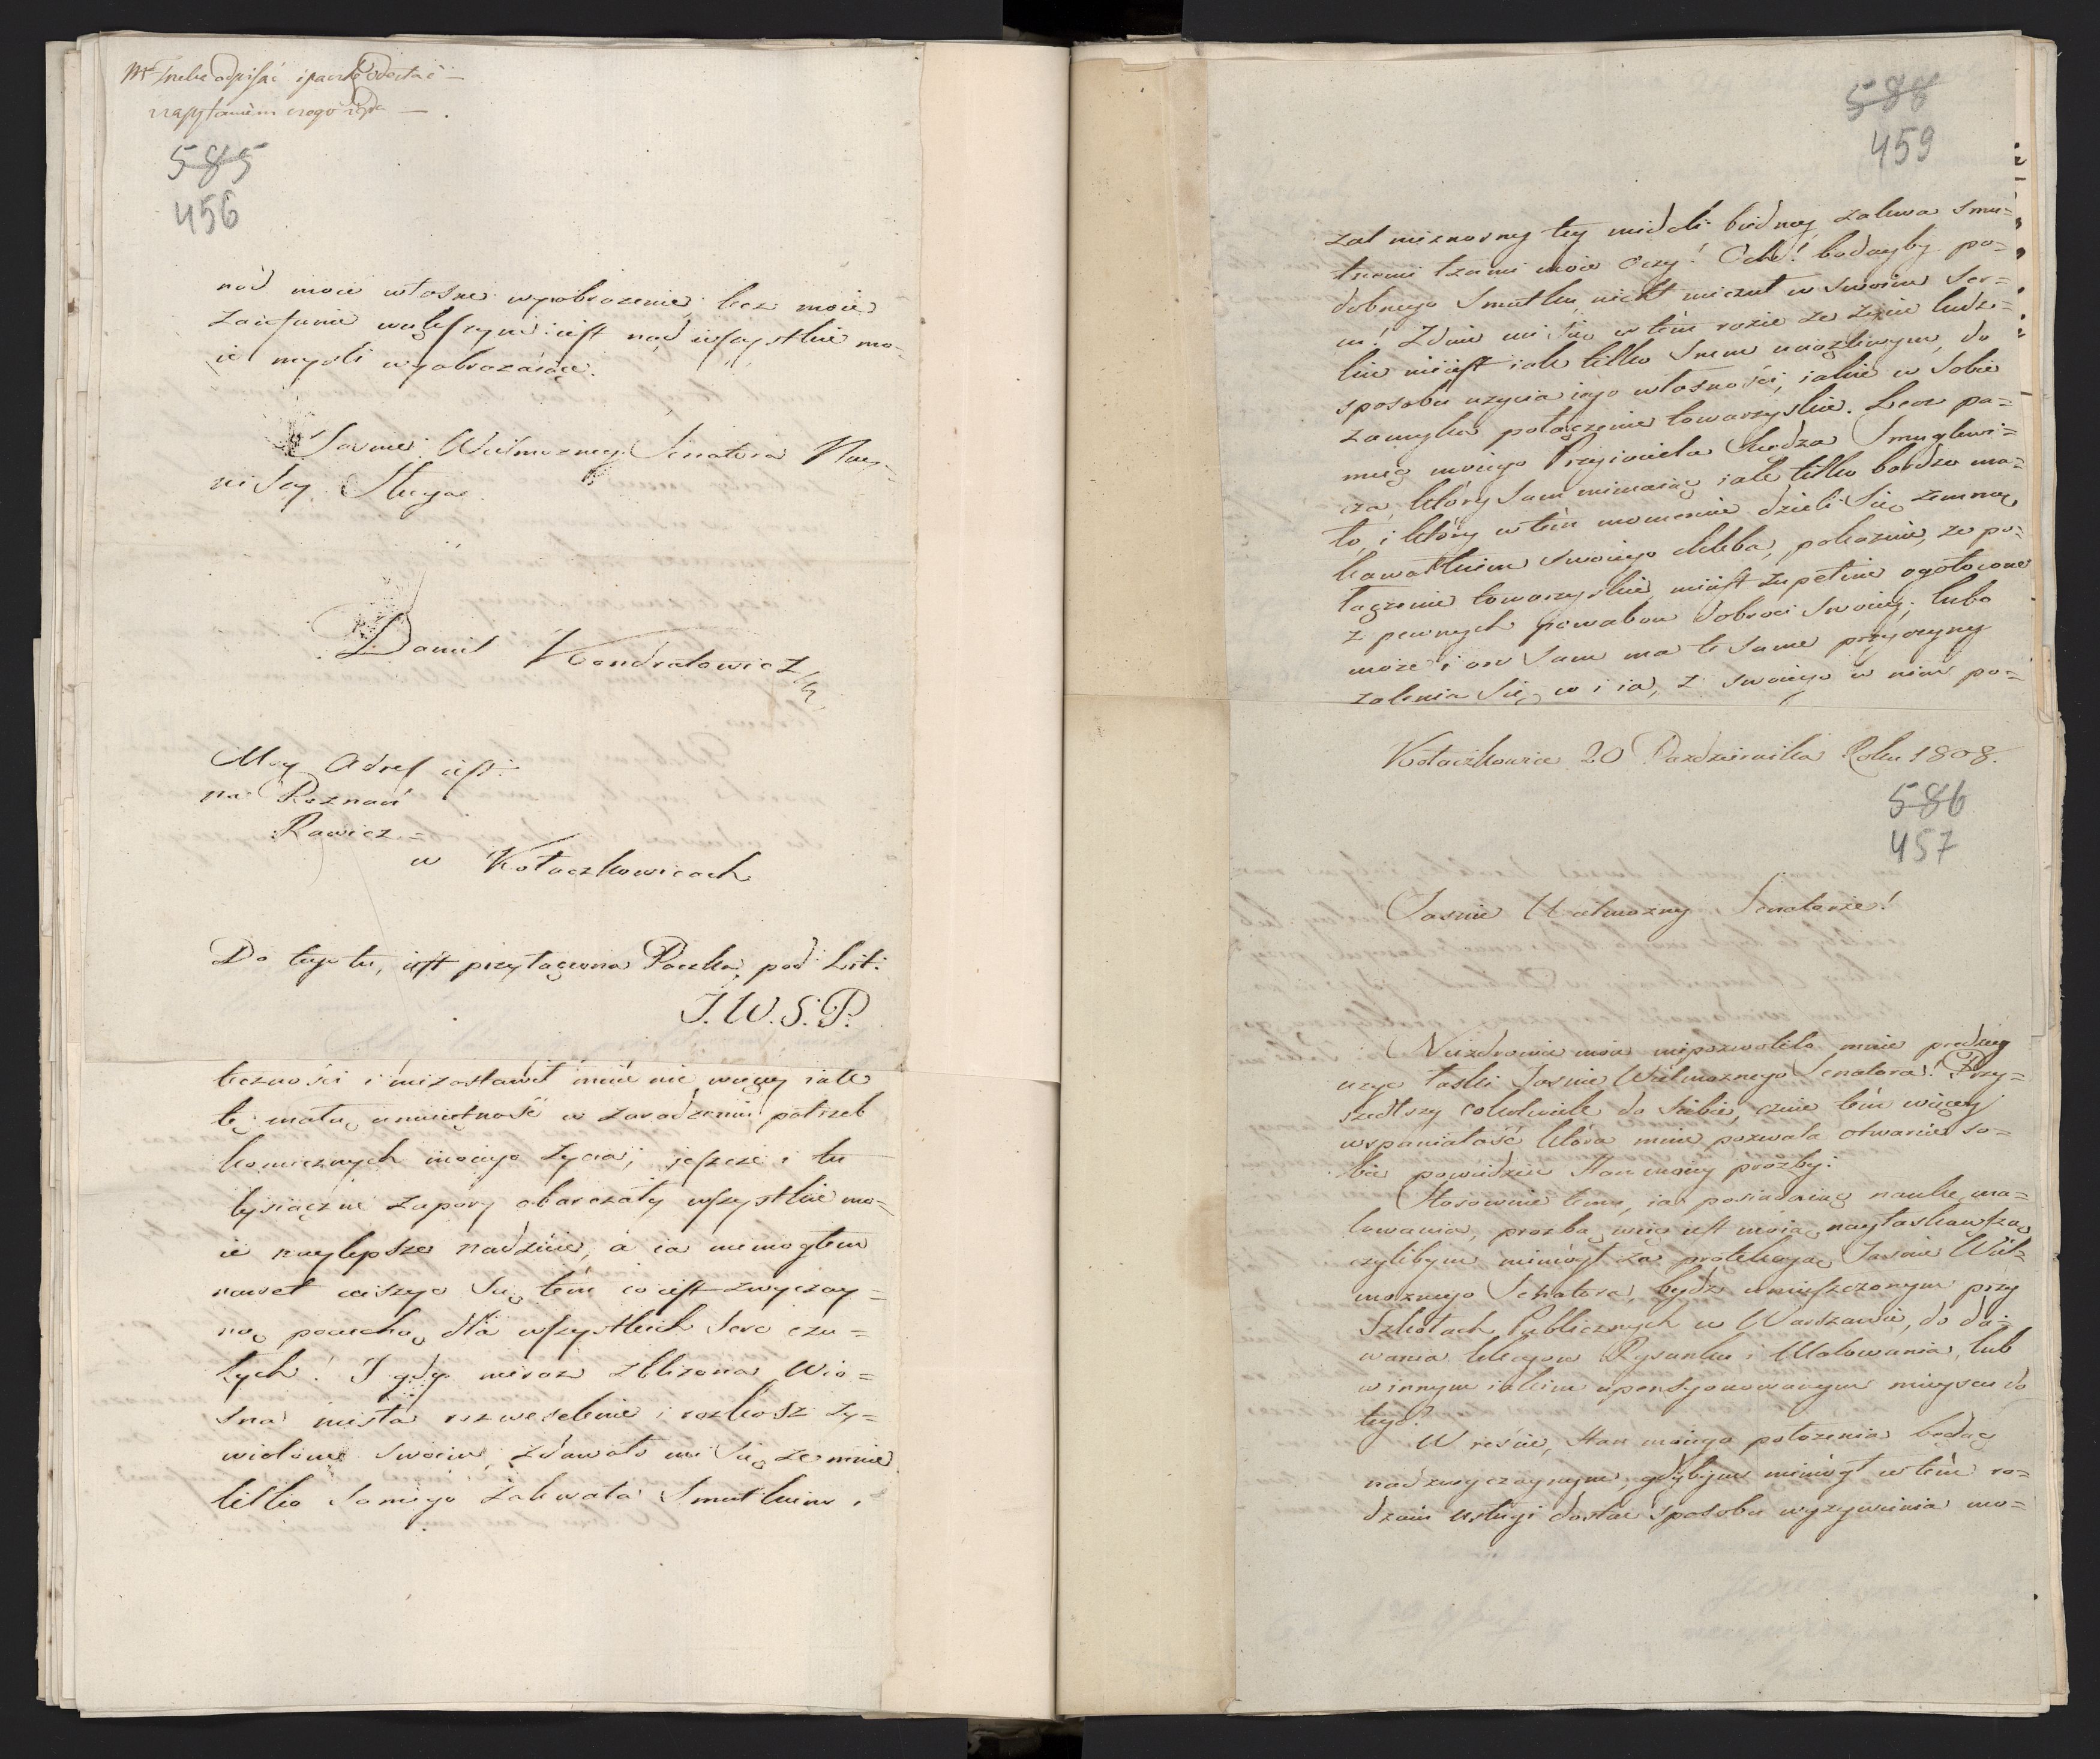 Mr Trzeba odpisać i paczkę odesłać —
z zapytaniem czego żąda — .
585
456
nad moie własne wyobrażenie; lecz moie
iest nad wszystkie mo-
ie mysli wyobrażaiące.
Jasnie Wielmoznego Senatora Nay-
nisszy Sługa
Daniel Kondratowicz
Moy Adres iest:
na Poznań
Rawicz =
w Kołaczkowicach
Do tego tu, iest przyłączona Paczka, pod Lit:
J. W. S. P.
liczności i niezostawił mnie nic więcey iak
tę małą umieiętność w zaradzeniu potrzeb
koniecznych moiego życia; jeszcze i tu
tysiączne zapory obarczały wszystkie mo=
ie naylepsze nadzieie, a ia niemogłem
nawet cieszyc się tém co iest zwyczay=
ną pociechą dla wszystkich serc czu=
łych! I gdy nieraz zbliżona Wio=
sna niesła rozweselenie i rozkosz ży=
wiołom swoim, zdawało mi się że mnie
tilko samego zalewała smutkiem,
588
459
żal nieznosney tey niedoli biedney zalewa smu=
tnemi łzami moie Oczy! Och! bodayby po=
dobnego Smutku nikt nieczuł w swoim Ser=
cu! Zdaie mi się w tém razie że życie ludz=
kie nieiest iak tilko Snem uciążliwym, do
sposobu użycia iego własności, iakie w Sobie
zamyka połączenie towarzyskie. Lecz pa=
mięć moiego Przyiaciela Xiedza Smuglewi=
cza, który sam niemaiąc iak tilko bardzo ma=
ło, i który w tém momencie dzieli się zemną
kawałkiem swoiego chleba, pokazuie, że po=
łączenie towarzyskie nieiest zupełnie ogołocone
z pewnych powabow dobroci swoiey; lubo
może i on sam ma te same przyczyny
żalenia się, co i ia, z swoiego w niem po=
Kołaczkowice 20 Pazdziernika Roku 1808.
586
457
Jasnie Wielmożny Senatorze!
Niezdrowie moie niepozwoliło mnie prędzey
użyc łaski Jasnie Wielmoznego Senatora! Przy=
szedłszy cokolwiek do siebie, czuie tém więcey
wspaniałość która mnie pozwala otwarcie so=
bie powiedzieć Stan moiey prozby:
Stosownie temu, ia posiadaiąc naukę ma=
lowania, prozbą więc iest moią nayłaskawszą
czylibym niemógł za protekcyą Jasnie Wiel=
moznego Senatora, bydz umieszczonym przy
Szkołach Publicznych w Warszawie, do da=
wania lekcyow Rysunku i Malowania, lub
w innym iakim upensyonowanym mieyscu do
tego?
W reście, stan moiego położenia będąc
nadzwyczaynym, gdybym niemógł w tém ro=
dzaiu usługi dostać sposobu wyżywienia mo=